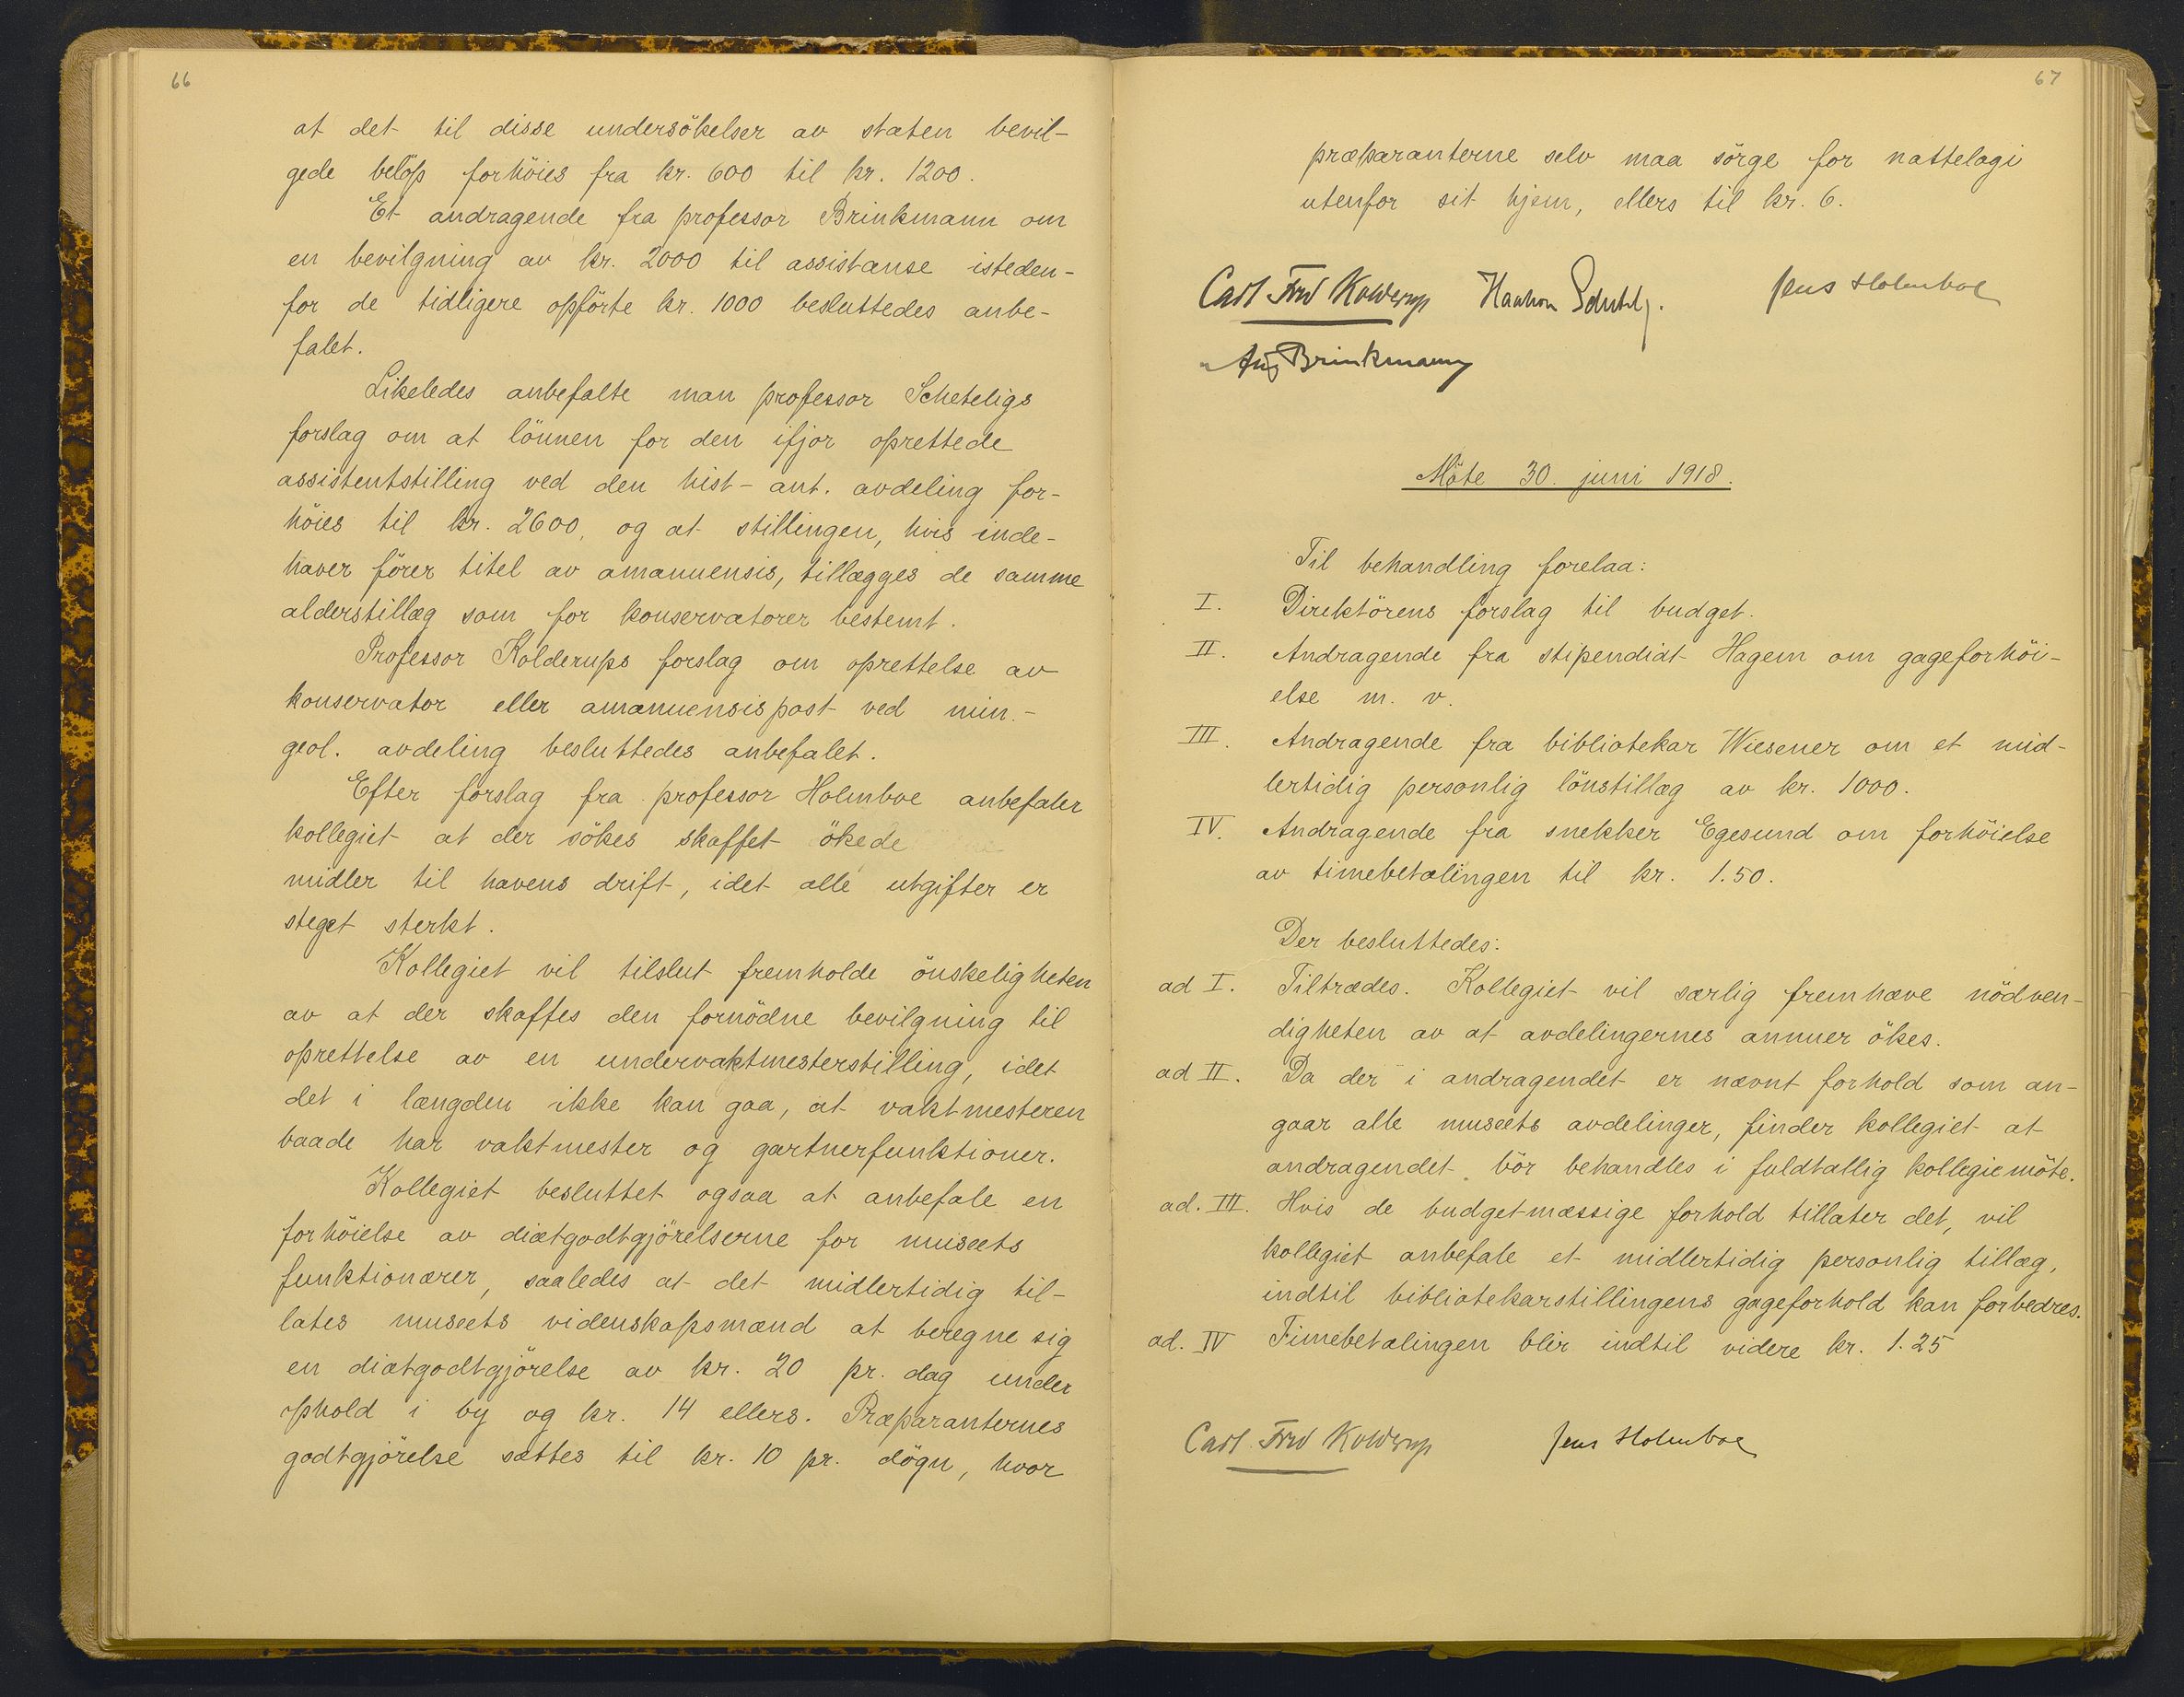 66
at det til disse undersökelser av staten bevil-
gede belöp forhöies fra kr. 600 til kr. 1200.
Et andragende fra professor Brinkmann om
en bevilgning av kr. 2000 til assistanse isteden-
for de tidligere opförte kr. 1000 besluttedes anbe-
falet.
Likeledes anbefalte man professor Scheteligs
forslag om at lönnen for den ifjor oprettede
assistentstilling ved den hist-ant. avdeling for-
höies til kr. 2600, og at stillingen, hvis inde-
haver förer titel av amanuensis, tillægges de samme
alderstillæg som for konservatorer bestemt.
Professor Kolderups forslag om oprettelse av
konservator eller amanuensispost ved min.-
geol. avdeling besluttedes anbefalet.
Efter forslag fra professor Holmboe anbefaler
kollegiet at der sökes skaffet ökede
midler til havens drift, idet alle utgifter er
steget sterkt.
Kollegiet vil tilslut fremholde önskeligheten
av at der skaffes den fornödne bevilgning til
oprettelse av en undervaktmesterstilling, idet
det i længden ikke kan gaa, at vaktmesteren
baade har vaktmester og gartnerfunktioner.
Kollegiet besluttet ogsaa at anbefale en
forhöielse av diætgodtgjörelserne for museets
funktionærer, saaledes at det midlertidig til-
lates museets videnskapsmænd at beregne sig
en diætgodtgjörelse av kr. 20 pr. dag under
ophold i by og kr. 14 ellers. Præparanternes
godtgjörelse sættes til kr. 10 pr. dögn, hvor
67
præparanterne selv maa sörge for nattelogi
utenfor sit hjem, ellers til kr. 6.
Carl Fred Kolderup Haakon Schetelig. Jens Holmboe
Aug Brinkmann
Möte 30. juni 1918.
Til behandling forelaa:
I. Direktörens forslag til budget.
II. Andragende fra stipendiat Hagem om gageforhöi-
else m. v.
III. Andragende fra bibliotekar Wiesener om et mid-
lertidig personlig lönstillæg av kr. 1000.
IV. Andragende fra snekker Egesund om forhöielse
av timebetalingen til kr. 1.50.
Der besluttedes:
ad I. Tiltrædes. Kollegiet vil særlig fremhæve nödven-
digheten av at avdelingernes annuer ökes.
ad II. Da der i andragendet er nævnt forhold som an-
gaar alle museets avdelinger, finder kollegiet at
andragendet bör behandles i fuldtallig kollegiemöte.
ad. III. Hvis de budgetmæssige forhold tillater det, vil
kollegiet anbefale et midlertidig personlig tillæg,
indtil bibliotekarstillingens gageforhold kan forbedres.
ad. IV Timebetalingen blir indtil videre kr. 1.25
Carl Fred Kolderup Jens Holmboe